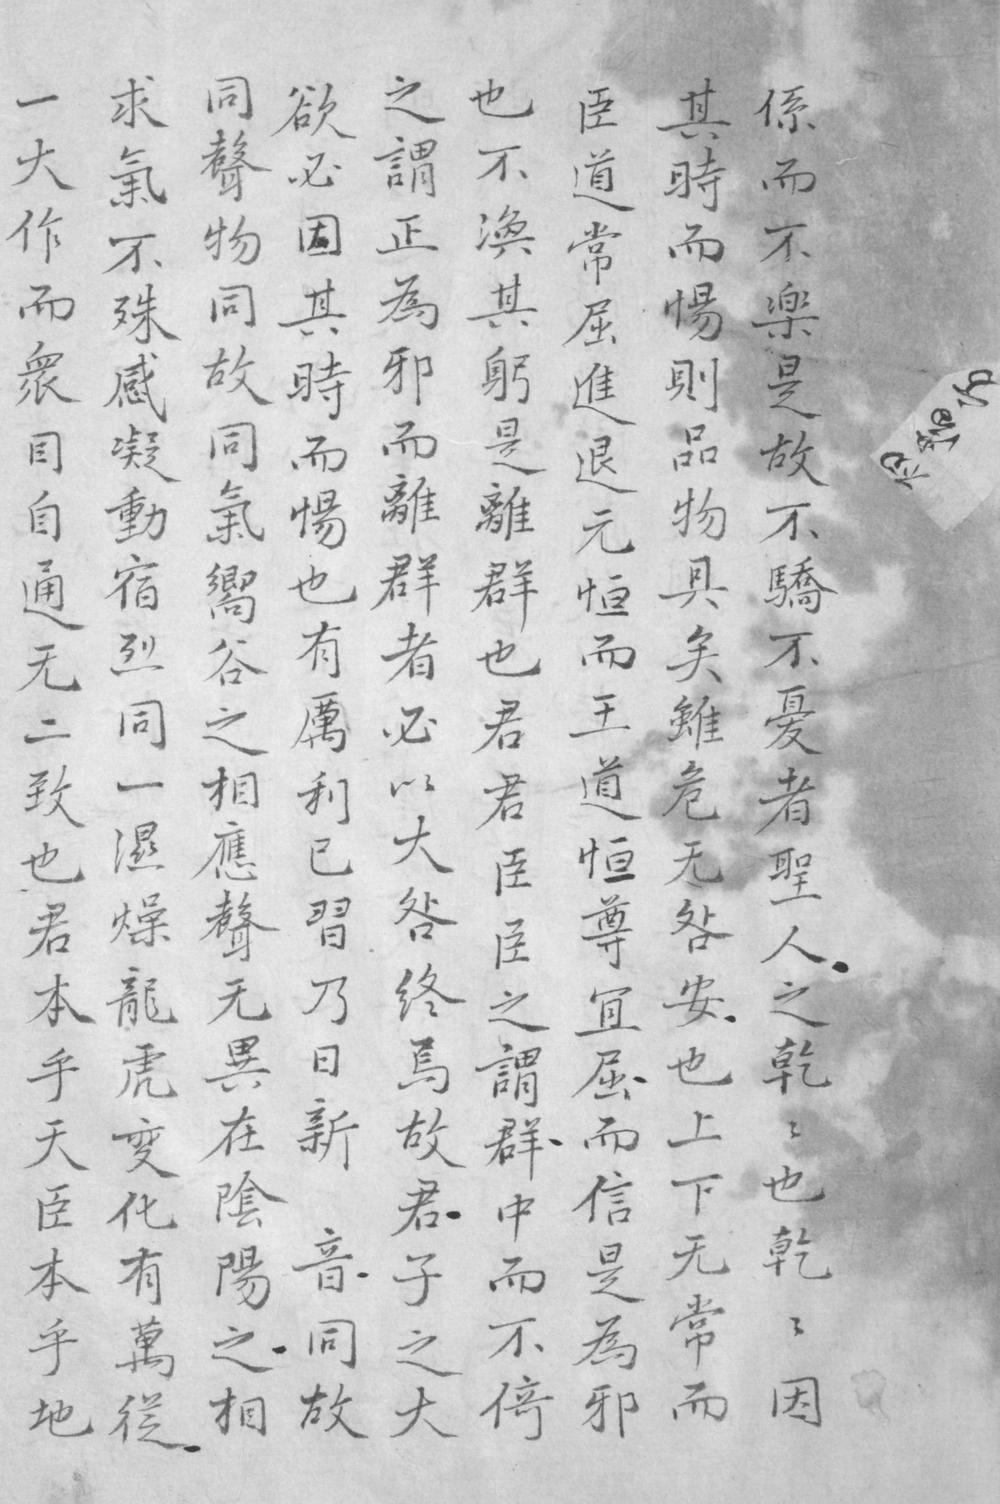 係而不楽是故不驕不憂者聖人之乾〻也乾〻因
其時而惕則品物具矣雖危无咎安也上下无常而
臣道常屈進退元恒而王道恒尊宜屈而信是為邪
也不渙其躬是離群也君君臣臣之謂群中而不倚
之謂正為邪而離群者必以大咎終焉故君子之大
欲必因其時而惕也有厲利已習乃日新　音同故
同聲物同故同氣嚮谷之相應聲无異在陰陽之相
求氣不殊感凝動宿烈同一濕燥龍虎変化有萬從
一大作而衆目自通无二致也君本乎天臣本乎地